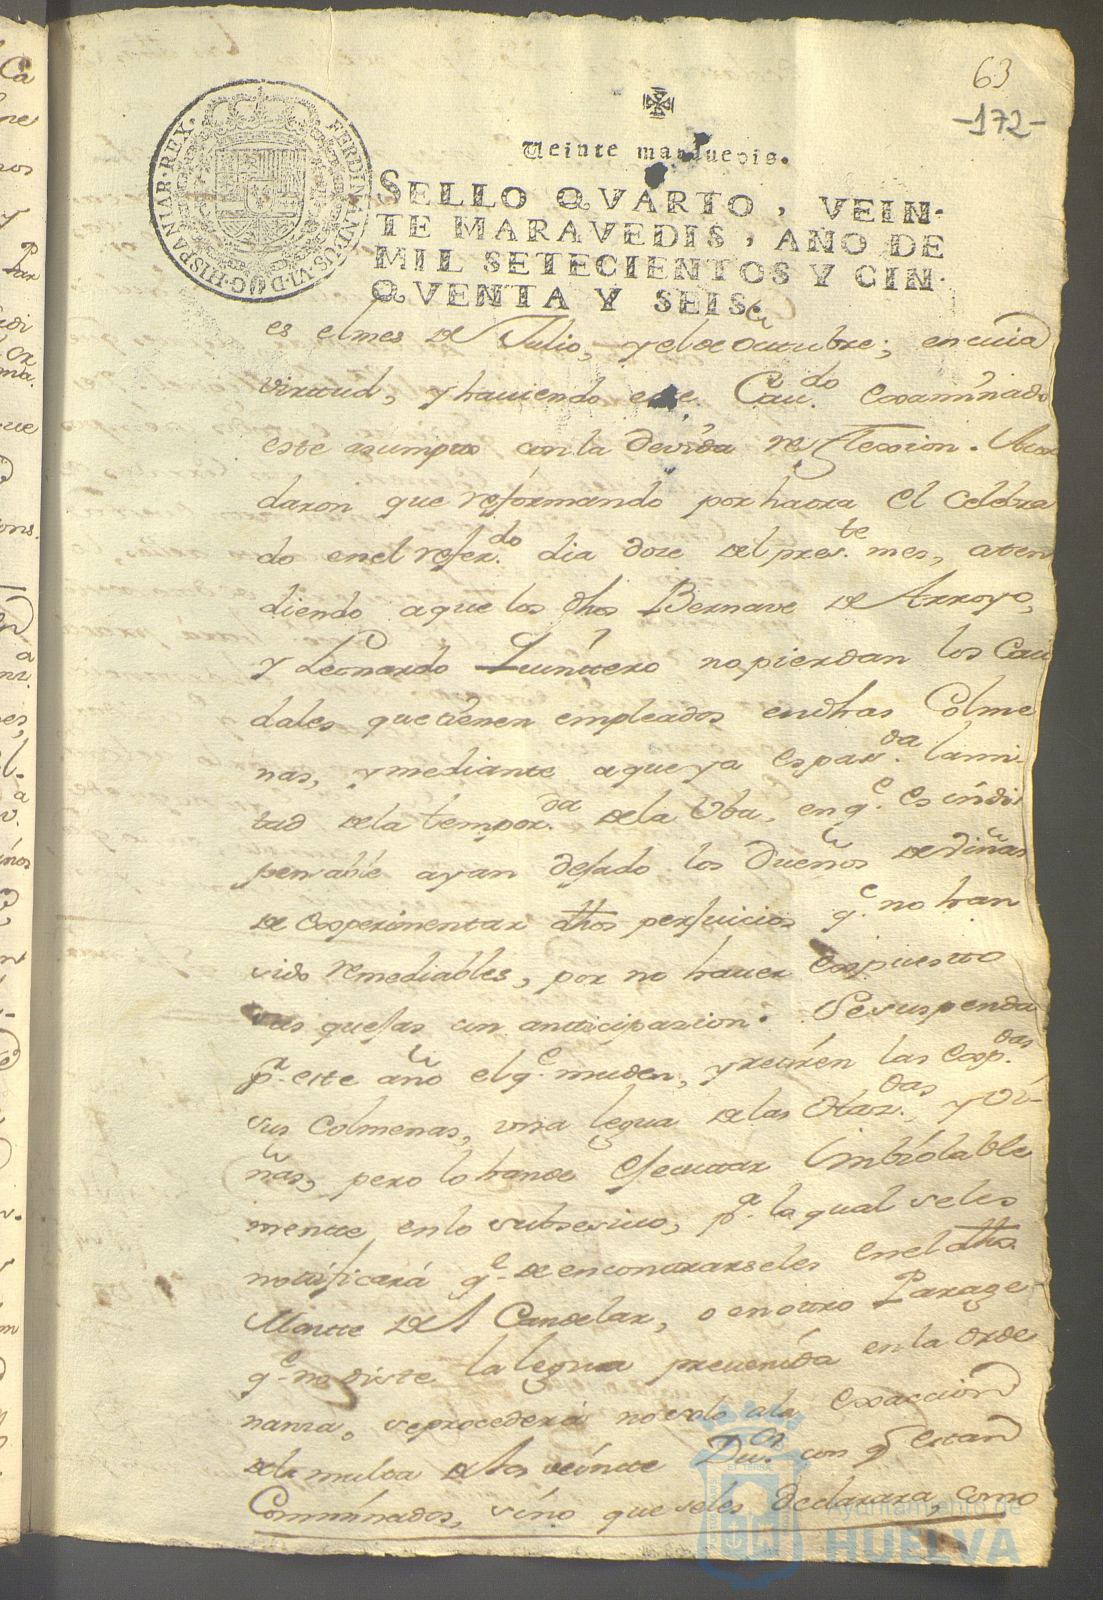 63
-172-
Veinte maravedis.
FERDINANDUS·VI·D·G·HISPANIAR·REX·
SELLO QVARTO, VEIN-
TE MARAVEDIS, AÑO DE
MIL SETECIENTOS Y CIN-
QVENTA Y SEIS.
es el mes de Julio, y el de Octubre; en cuia
virtud, y haviendo este Cav.do examinado
este asumpto con la devida reflecsion. Acor
daron que reformando por haora el celebra
do en el refer.do dia doze del pres.te mes, aten
diendo a que los dhos Bernave de Arroyo,
y Leonardo Quintero no pierdan los Cau
dales que tienen empleados en dhas Colme
nas, y mediante a que ya es pas.da la mi
tad de la tempor.da de la Uba, en q.e es indis
pensable ayan dejado los Dueños de Viñas
de experimentar dhos perjuicios q.e no han
sido remediables, por no haver expuesto
sus quejas con anticipazion. Se suspenda
p.a este año el q.e muden, y retiren las exp.das
sus colmenas, una legua de las Olaz.das y Vi-
ñas, pero lo han de ejecutar imbiolable
mente en lo subsesivo, p.a lo qual se les
notificará q.e de encontrarseles en el dho
Monte del Candelar, o en otro Parage
q.e no diste la legua prevenida en la Orde
nanza, se procederá no solo a la exaccion
de la multa de los veinte Du.os con q.e estan
Comminados, sino que se les declarara, como
Ayuntamiento de
HUELVA